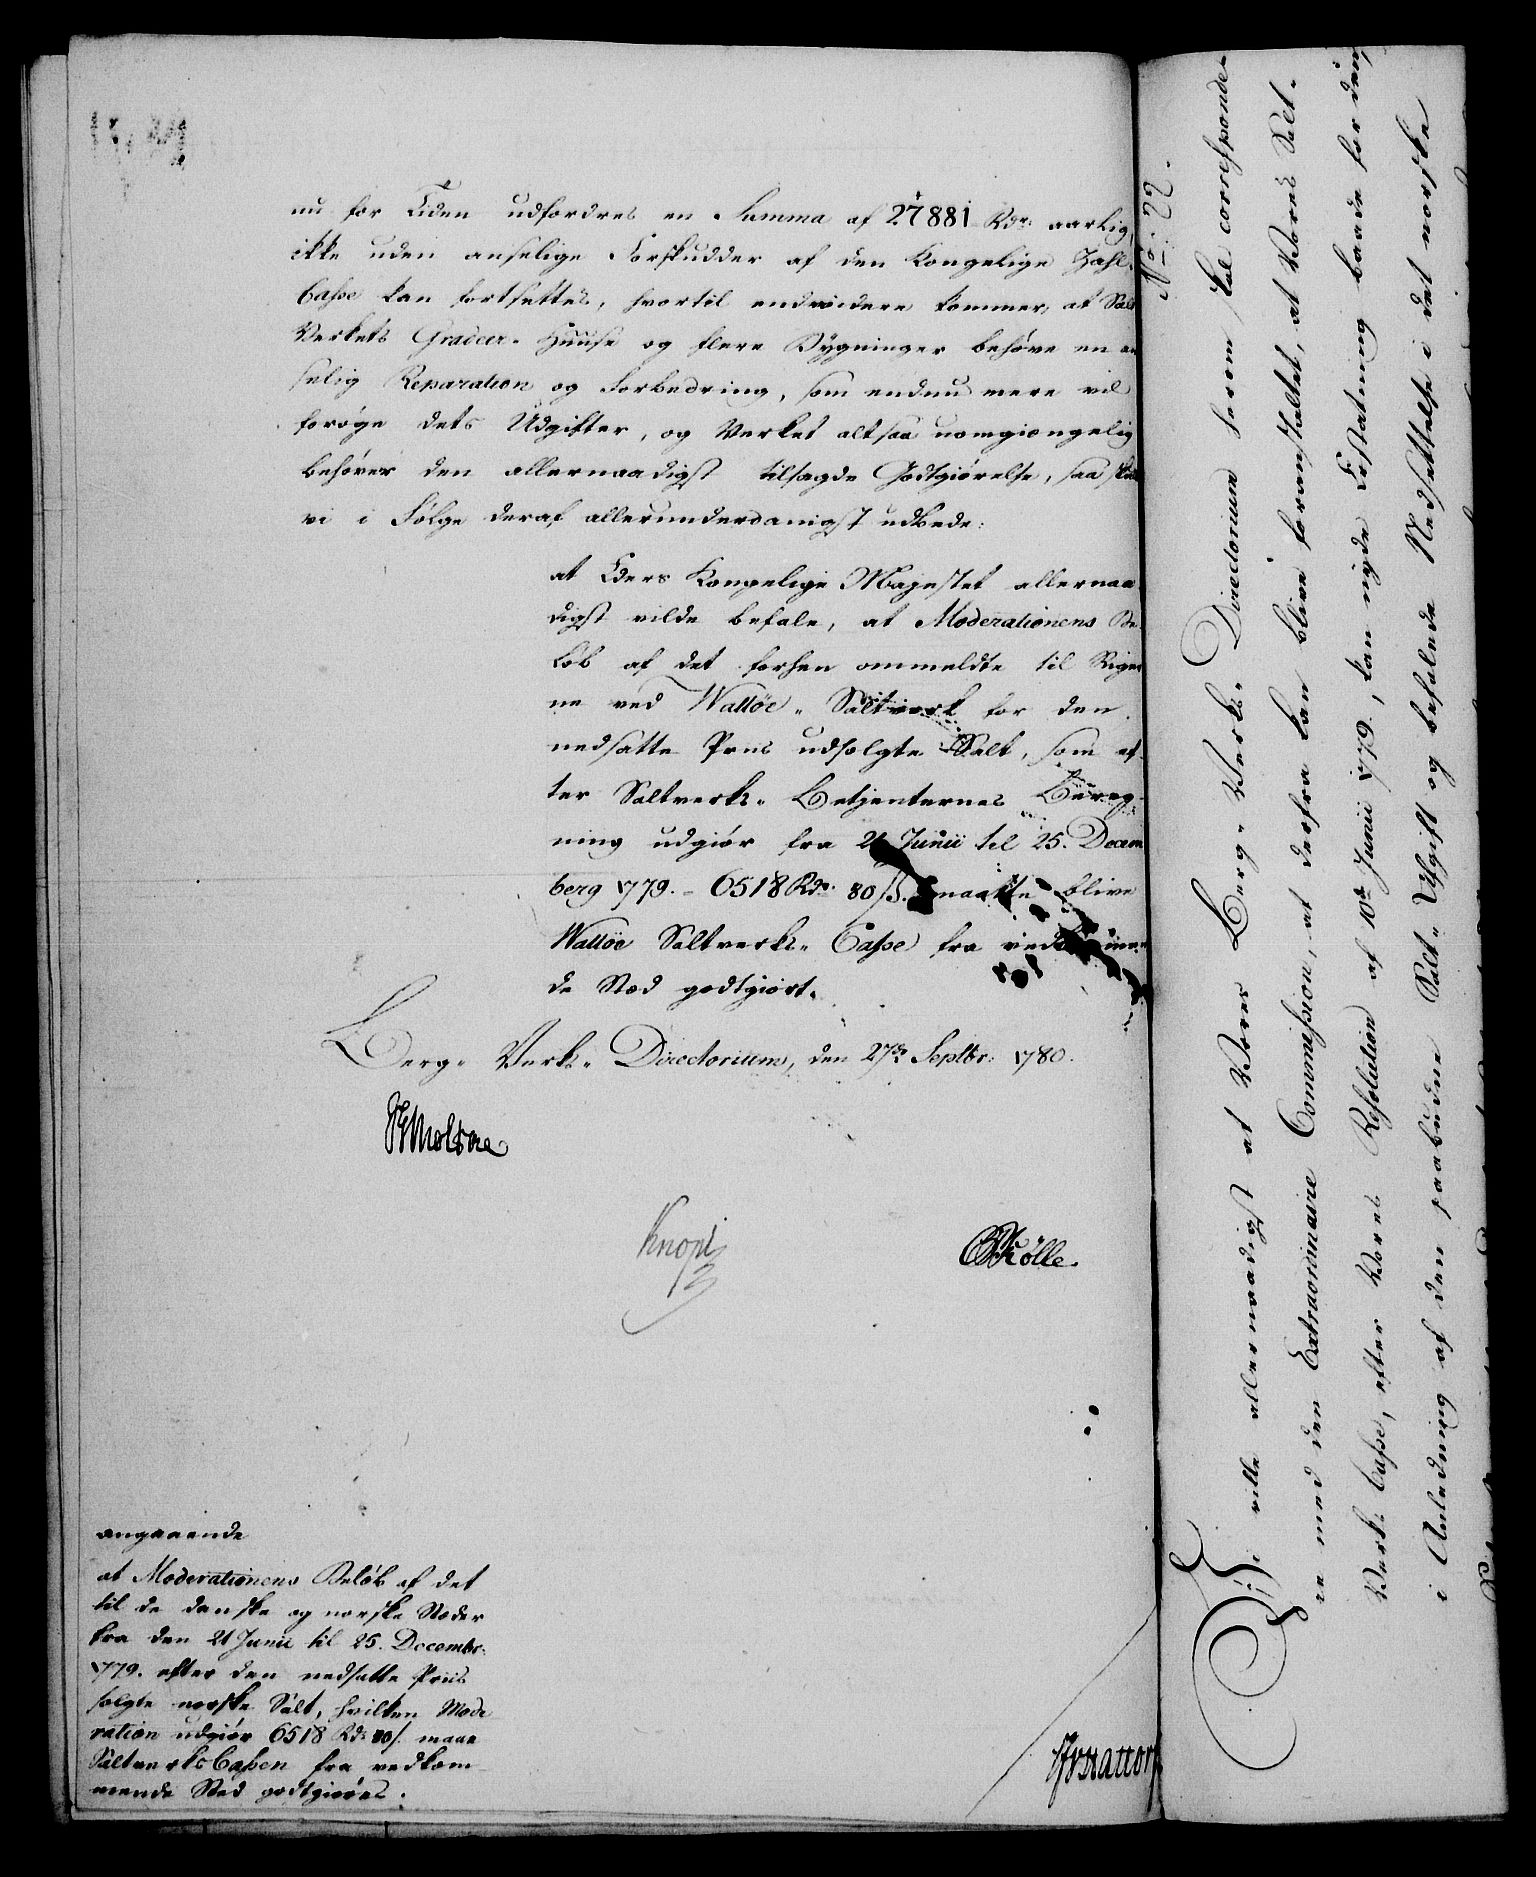 nu for Tiden udfordres en Summa af 27881 Rdr aarlig,
ikke uden anselige Forskudder af den Kongelige Zahl-
Casse kan fortsettes, hvortil endvidere kommer, at Salt
Verkets Gradeer-Huuse og flere Bygninger behøve en an
selig Reparation og Forbedring, som endnu mere vil
forøge dets Udgifter, og Verket altsaa uomgiængelig
behøver den allernaadigst tilsagde Godtgiørelse, saa skal
vi i Følge deraf allerunderdanigst udbede:
at Eders Kongelige Majestet allernaa
digst vilde befale, at Moderationens Be-
løb af det forhen ommeldte til Riger
ne ved Walløe-Saltverk for den
nedsatte Priis udsolgte Salt, som ef-
ter Saltverks-Betjenternes Bereg-
ning udgiør fra 21 Junii til 25. Decem
berg 1779. - 6518 Rdr 80 s. maatte blive
Walløe Saltverks-Casse fra vedkommen
de Sted godtgiort.
Berg-Verks-Directorium, den 27de Septbr: 1780.
Knopf
Kølle.
angaaende
at Moderationens Beløb af det
til de danske og norske Stæder
fra den 21 Junii til 25. Decembr:
1779. efter den nedsatte Priis
solgte norske Salt, hvilken Mode
ration udgiør 6518 Rdr 80 s. maae
SaltverksCassen fra vedkom-
mende Sted godtgiøres.
No: 22.
Vi ville allernaadigst at Vores Berg-Verks-Directorium herom skal corresponde-
re med den Extraordinaire Commission, at derfra kan blive foranstaltet, at Vores Salt-
Verks Casse, efter Vores Resolution af 10de Junii 1779, kan nyde Erstatning baade for den,
i Anledning af den paabudne Salt-Afgift og befalede Nedsettelse i det norske